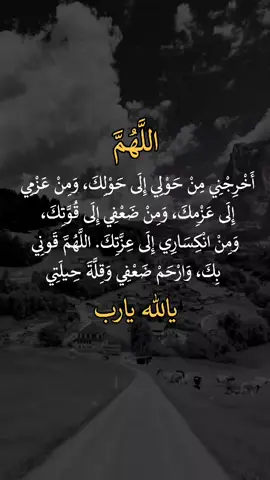 اللَّهُمَّ
أَخْرِجْنِي مِنْ حَوْلِي إِلَى حَوْلِكَ، وَمِنْ عَزْمِي
إِلَى عَزْمِكَ، وَمِنْ ضَعْفِي إِلَى قُوَّتِكَ،
وَمِنْ انْكِسَارِي إِلَى عِزَّتِكَ. اللَّهُمَّ قَوِّنِي
بِكَ، وَارْحَمْ ضَعْفِي وَقِلَّةَ حِيلَتِي
يالله يارب